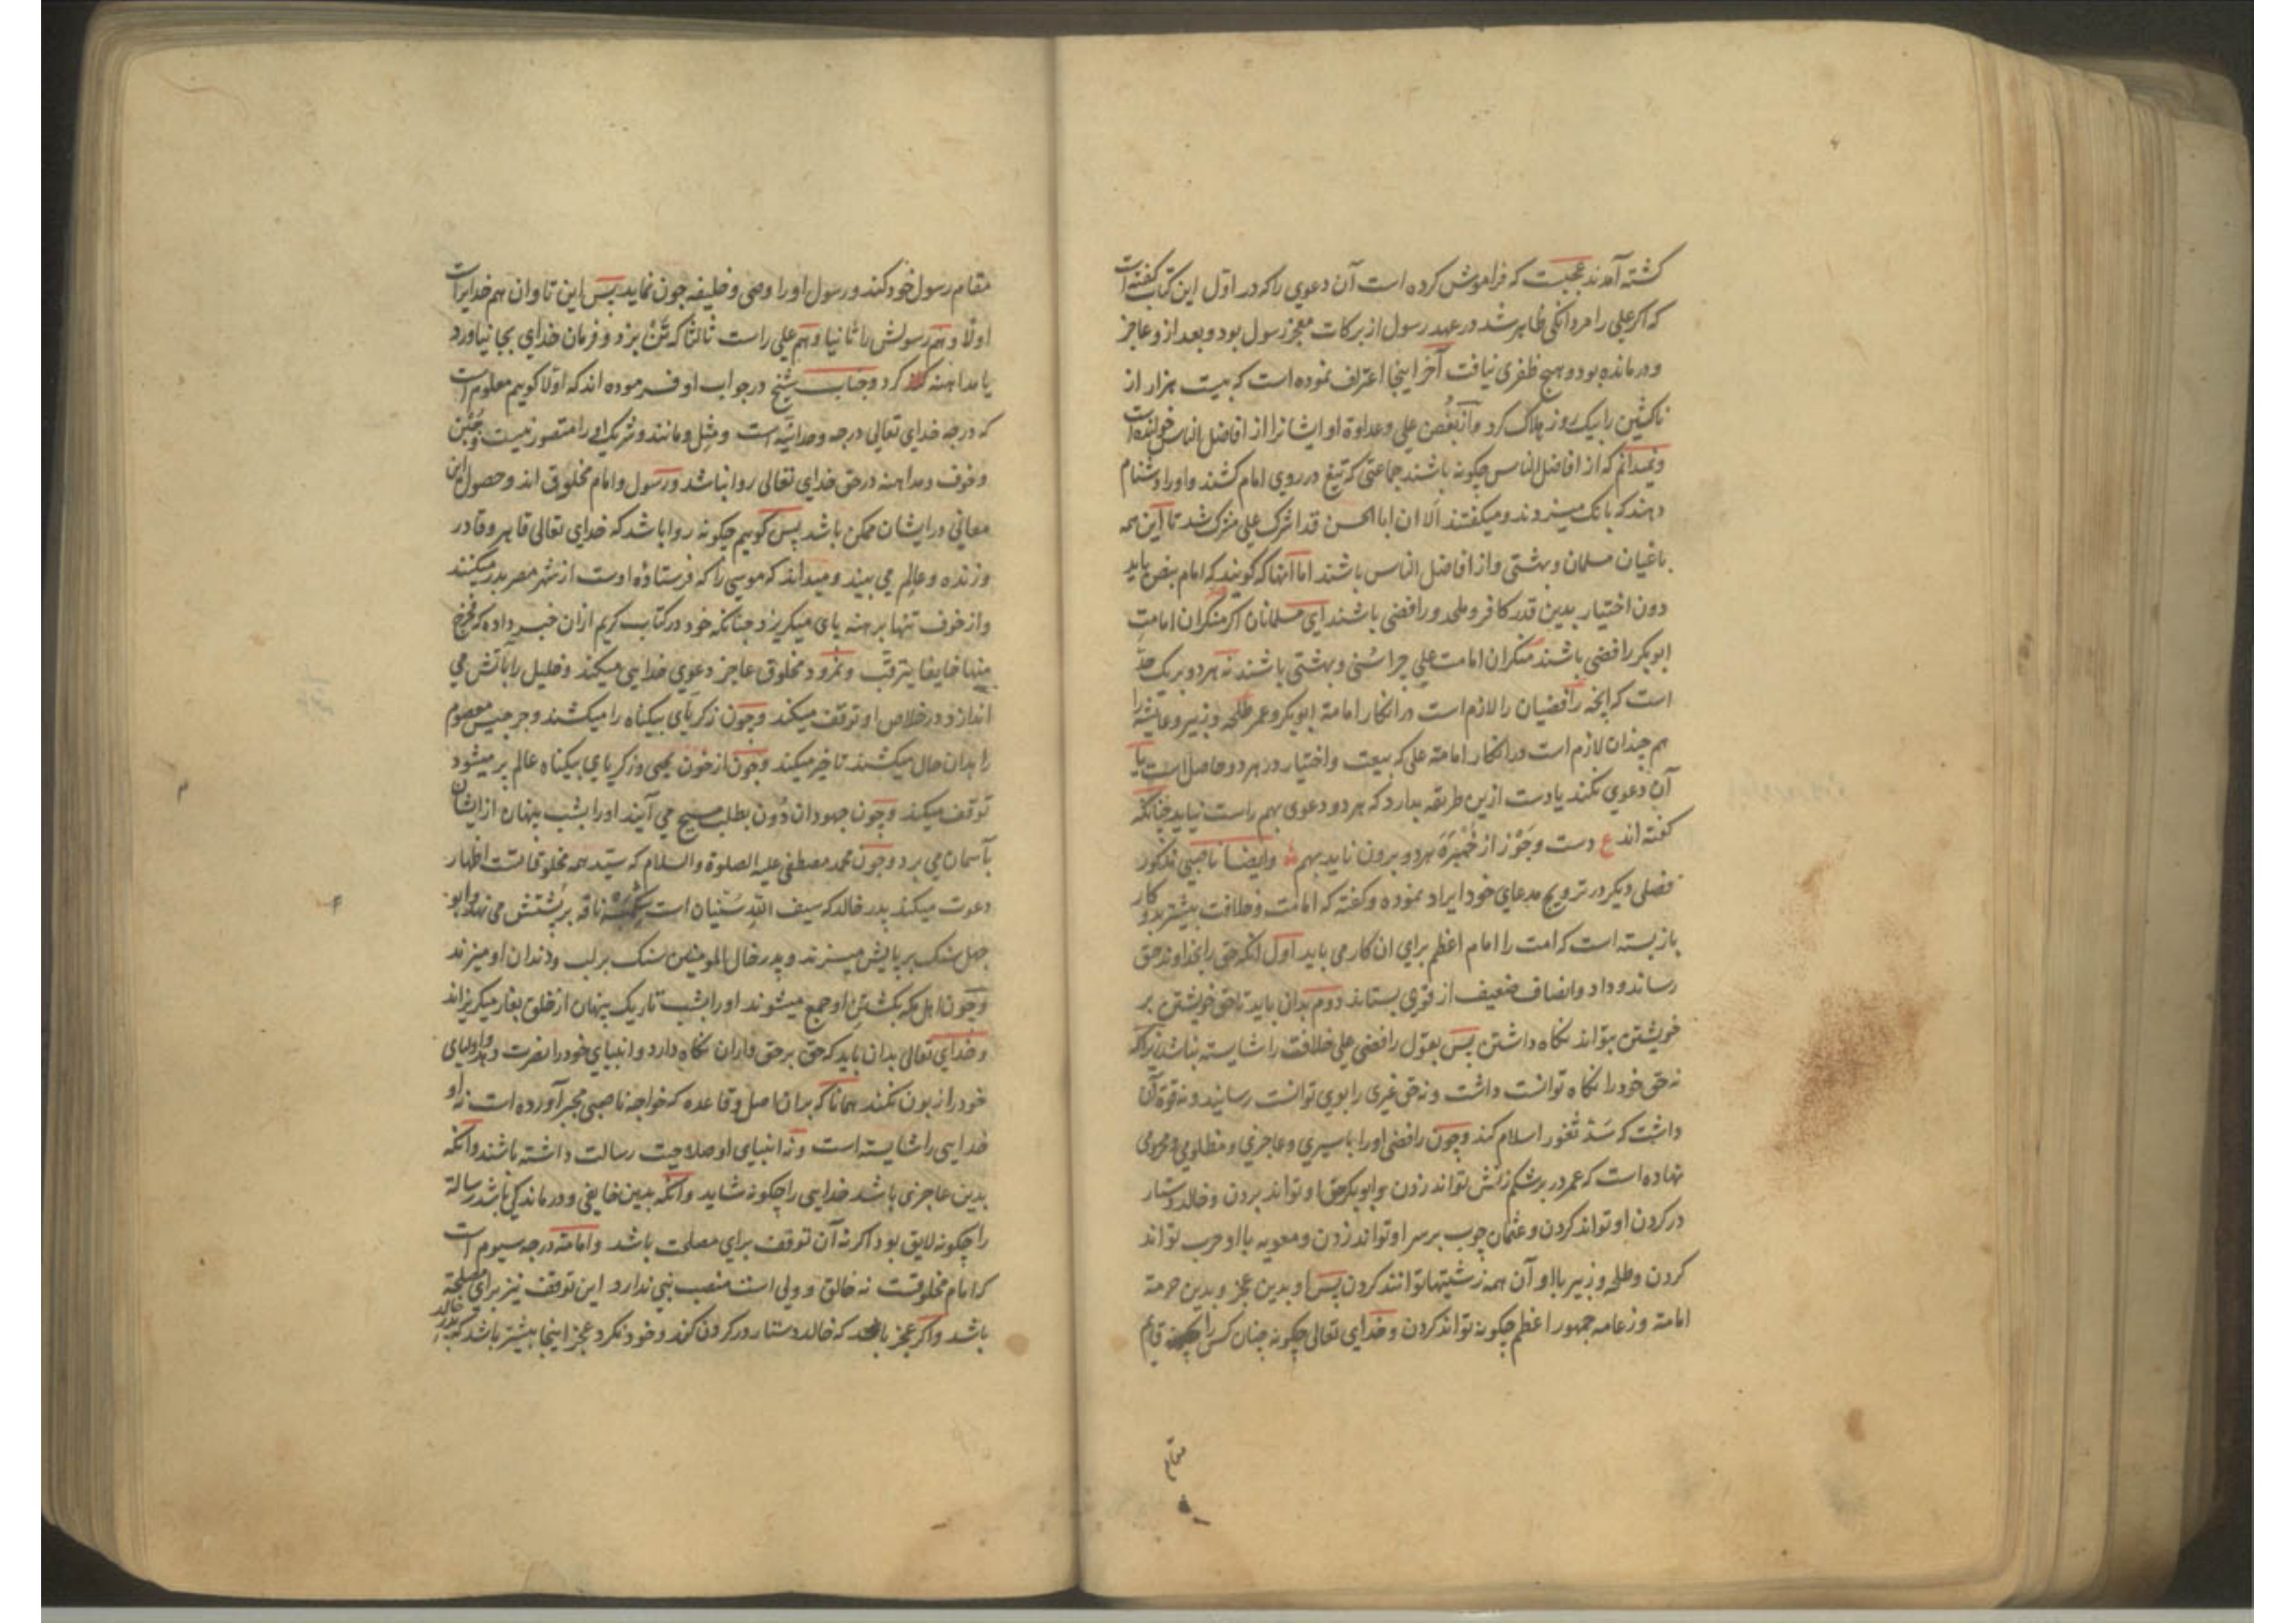 کشته آمدند عجبست که فراموش کرده است آن دعوی را که در اول این کتاب گفته است
که اکر علی را مردانکی ظاهر شد در عهد رسول از برکات معجز رسول بود و بعد ازو عاجز
و درمانده بود و هیچ ظفری نیافت آخر اینجا اعتراف نموده است که بیست هزار از
ناکثین را بیک روز هلاک کرد و از بغض علی و عداوة او ایشانرا از افاضل الناس خوانده است
و نمیدانم که از افاضل الناس چکونه باشند جماعتی که تیغ در روی امام کشند و او را دشنام
دهند که بانک میزدند و میکفتند الا ان ابا الحسن قد اشرک علی مشرک شد تا این همه
باغیان مسلمان و بهشتی و از افاضل الناس باشند اما آنها که کویند که امام بنص باید
دون اختیار بدین قدر کافر و ملحد و رافضی باشند ای مسلمانان اکر منکران امامت
ابوبکر رافضی باشند منکران امامت علی چرا سنی و بهشتی باشند نه هر دو بر یک حد
است که انچه رافضیان را لازم است در انکار امامة ابوبکر و عمر طلحه و زبیر و عایشه را
هم چندان لازم است در انکار امامة علی که بیعت و اختیار در هر دو حاصل است یا
آن دعوی نکند یا دست ازین طریقه بدارد که هر دو دعوی بهم راست نیاید چنانکه
کفته اند ع دست و جوز از خمیره هر دو برون ناید بهم و ایضا ناصبی مذکور
فصلی دیکر در ترویج مدعای خود ایراد نموده و کفته که امامت و خلافت بیشتر بدو کار
باز بسته است که امت را امام اعظم برای ان کار می باید اول انکه حق را بخداوند حق
رساند و داد و انصاف ضعیف از قوی بستاند دوم بدان باید تا حق خویشتن بر
خویشتن بتواند نکاه داشتن پس بقول رافضی علی خلافت را شایسته نباشد زیرا که
نه حق خود را نکاه توانست داشت و نه حق غیری را بوی توانست رسانید و نه قوة آن
داشت که سد ثغور اسلام کند و چون رافضی او را باسیری و عاجزی و مظلومی و محرومی
نهاده است که عمر در بر شکم زنش تواند زدن و ابوبکر حق او تواند بردن و خالد دستار
در کردن او تواند کردن و عثمان چوب بر سر او تواند زدن و معویه با او حرب تواند
کردن و طلحه و زبیر با او آن همه زشتیها توانند کردن پس او بدین عجز و بدین حرمة
امامة و زعامه جمهور اعظم چکونه تواند کردن و خدای تعالی چکونه چنان کس را قایم
مقام
مقام رسول خود کند و رسول او را وصی و خلیفه چون نماید پس این تاوان هم خدایراست
اولا و هم رسولش را ثانیا و هم علی راست ثالثا که تن بزد و فرمان خدای بجا نیاورد
یا مداهنه کرد و جناب شیخ در جواب او فرموده اند که اولا کوییم معلوم است
که درجه خدای تعالی درجه وحدانیه است و مثل و مانند و شریک او را متصور نیست و جبن
و خوف و مداهنه در حق خدای تعالی روا نباشد و رسول و امام مخلوق اند و حصول این
معانی در ایشان ممکن باشد پس کوییم چکونه روا باشد که خدای تعالی قاهر و قادر
و زنده و عالم می بیند و میداند که موسی را که فرستاده اوست از شهر مصر بدر میکنند
و از خوف تنها برهنه پای میکریزد چنانکه خود در کتاب کریم ازان خبر داده که فخرج
منها خایفا یترقب و نمرود مخلوق عاجز دعوی خدایی میکند و خلیل را بآتش می
اندازد و در خلاص او توقف میکند و چون زکریای بیکناه را میکشند و جرجیس معصوم
را بدان حال میکشند تاخیر میکند و چون از خون یحیی و زکریای بیکناه عالم پر میشود
توقف میکند و چون جهودان دون بطلب مسیح می آیند او را بشب پنهان از ایشان
بآسمان می برد و چون محمد مصطفی علیه الصلوة و السلام که سید همه مخلوقاتست اظهار
دعوت میکند پدر خالد که سیف الله سنیان است ناقه بر پشتش می نهد و ابو
جهل سنک بر پایش میزند و پدر خال المومنین سنک بر لب و دندان او میزند
و چون اهل مکه بکشتن او جمع میشوند او را بشب تاریک پنهان از خلق بغار میکریزاند
و خدای تعالی بدان باید که حق بر حق داران نکاه دارد و انبیای خود را نصرت دهد و اولیای
خود را زبون نکند همانا که بدان اصل و قاعده که خواجه ناصبی مجبر آورده است نه او
خدایی را شایسته است و نه انبیای او صلاحیت رسالت داشته باشند و آنکه
بدین عاجزی باشد خدایی را چکونه شاید و آنکه بدین خایفی و درماندکی باشد رسالة
را چکونه لایق بود اکر نه آن توقف برای مصلحت باشد و امامة درجه سیوم است
که امام مخلوقست نه خالق و ولی است منصب نبی ندارد این توقف نیز برای مصلحة
باشد و اکر عجز باشد که خالد دستار در کردن کند و خود نکرد عجز اینجا بیشتر باشد که پدر خالد